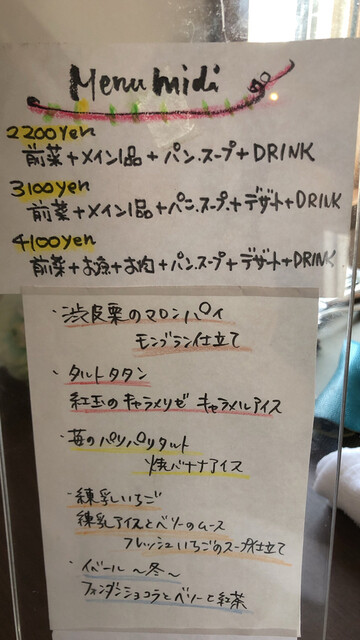 Menu midi
2200yen
前菜+メイン1品+パン.スープ+DRINK
3100yen
前菜+メイン1品+パン.スープ+デザート+DRINK
4100yen
前菜+お魚+お肉+パン.スープ+デザート+DRINK
・渋皮栗のマロンパイ
モンブラン仕立て
・タルトタタン
紅玉のキャラメリゼ キャラメルアイス
・苺のパリパリタルト
焼バナナアイス
・練乳いちご
練乳アイスとベリーのムース
フレッシュいちごのスープ仕立て
・イベール ～冬～
フォンダンショコラとベリーと紅茶